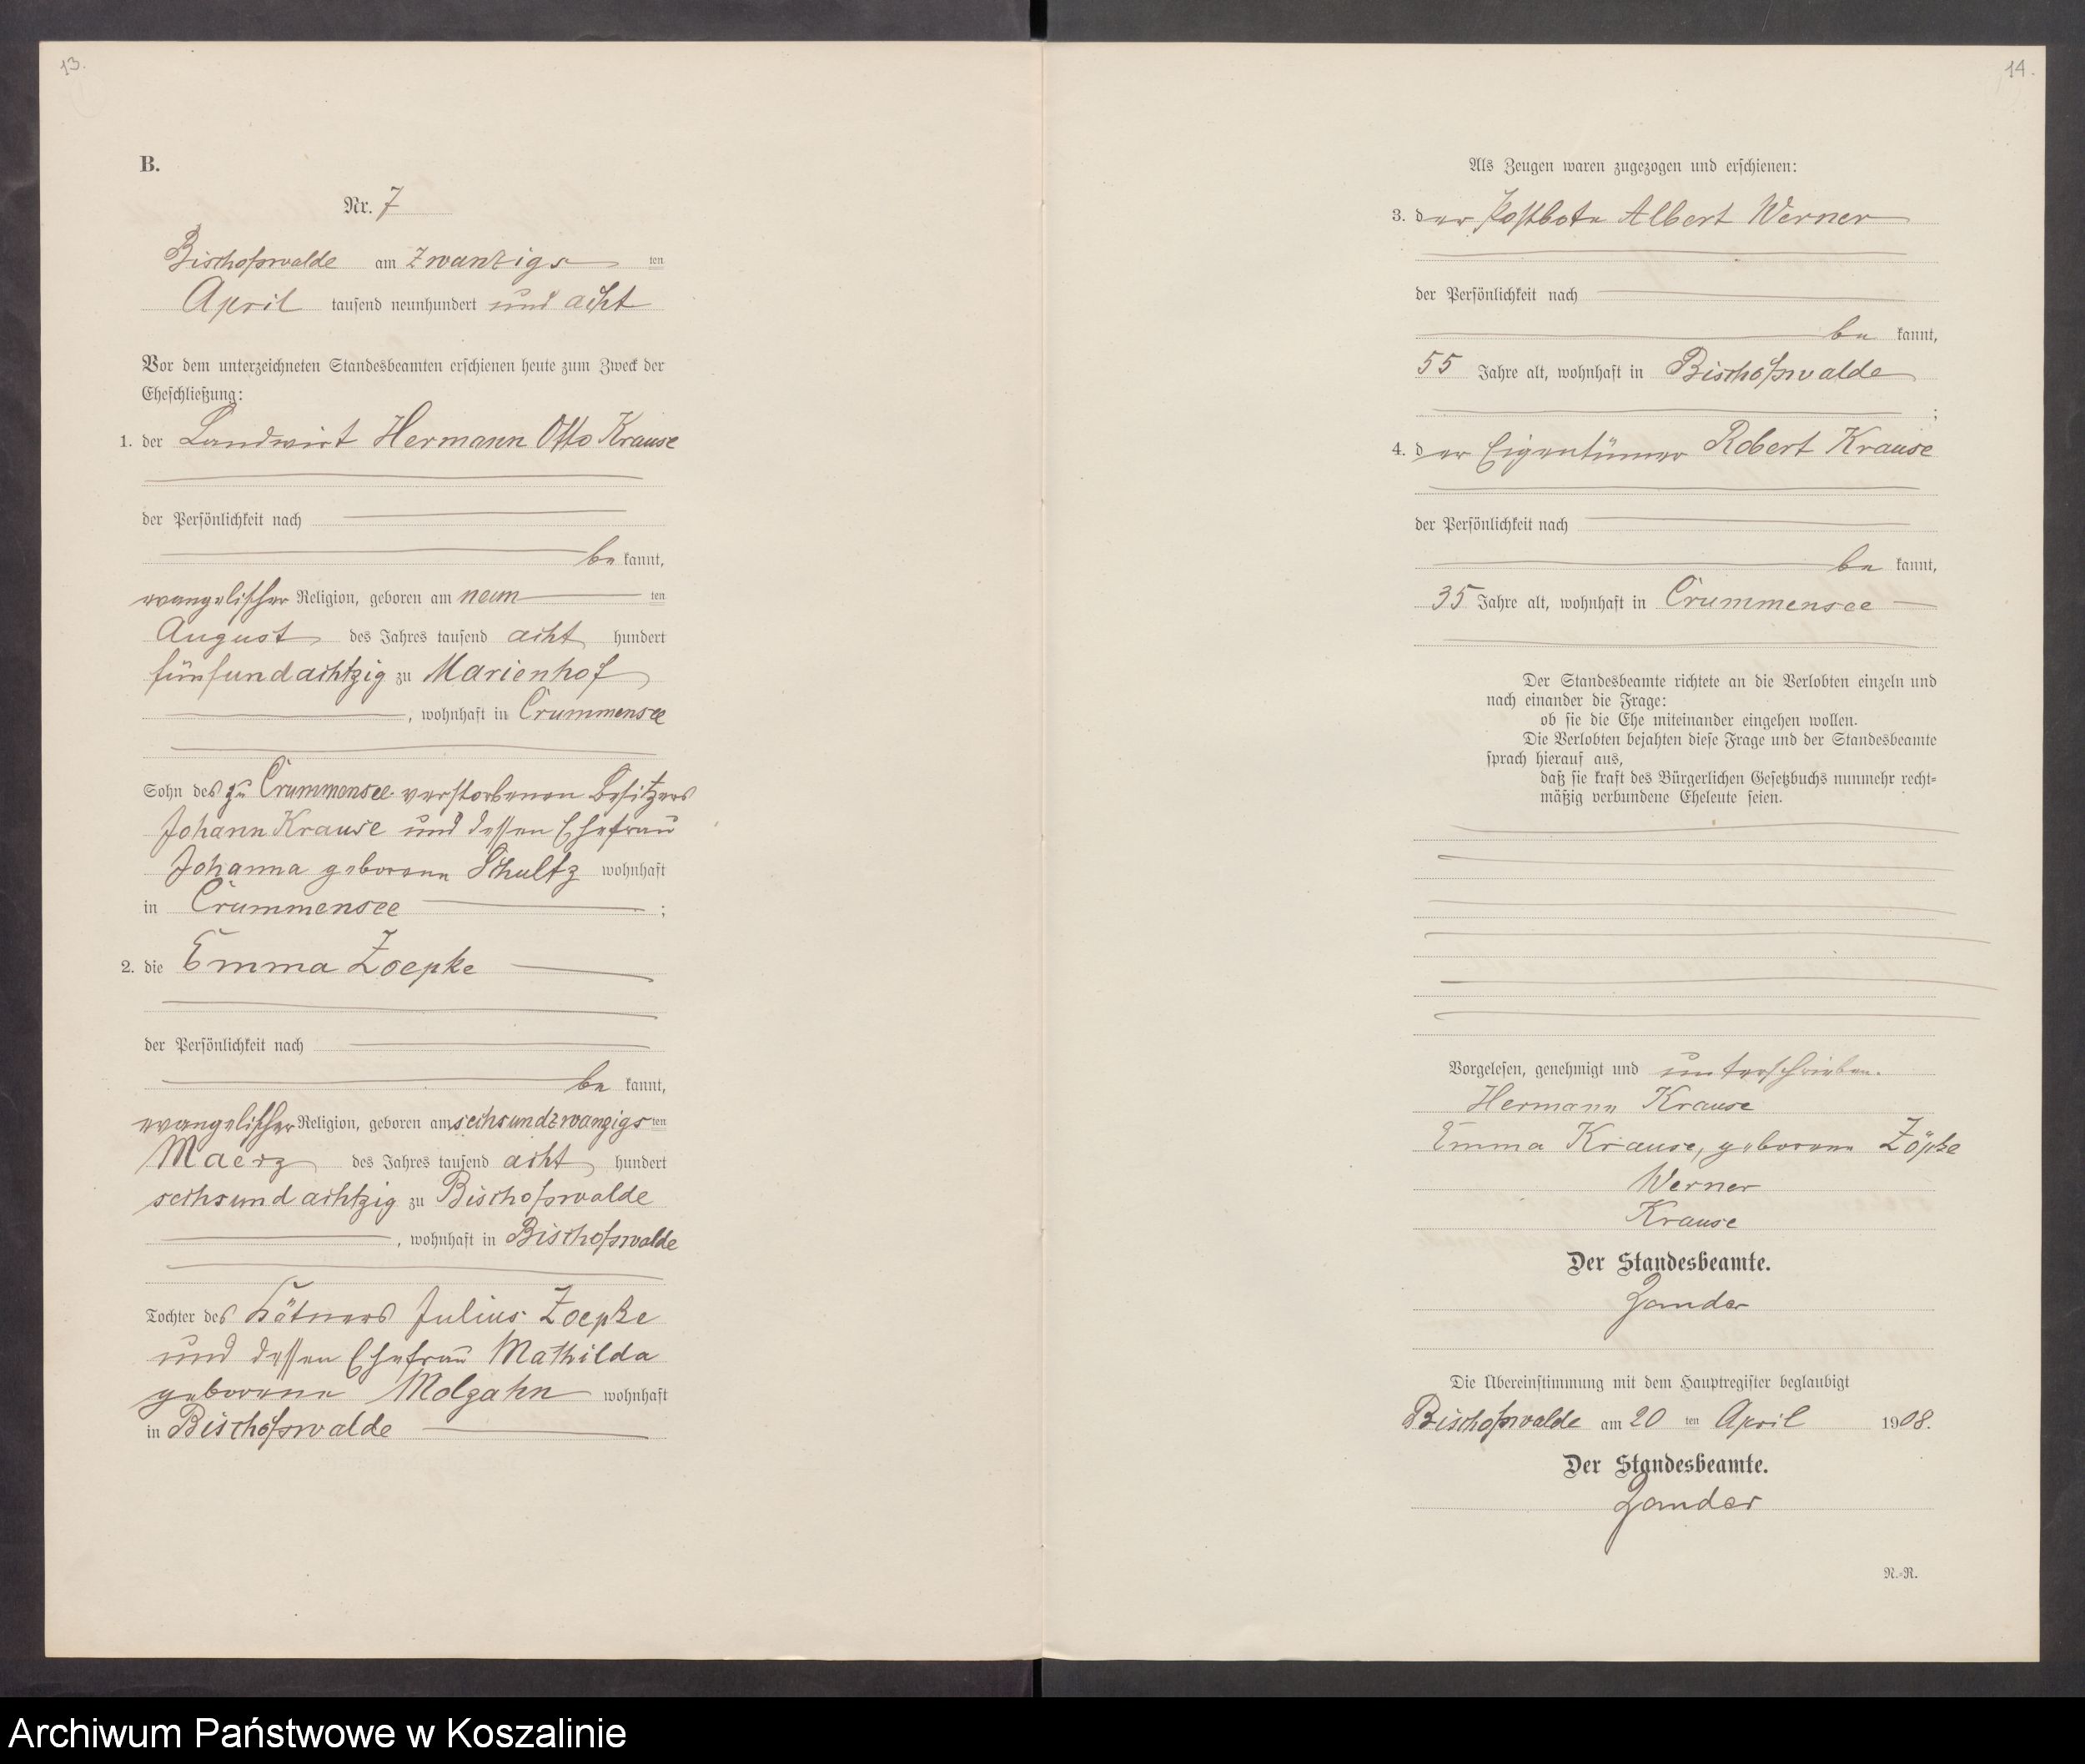 13.
B.
Nr. 7
Bischofswalde am zwanzigsten
April tausend neunhundert und acht
Vor dem unterzeichneten Standesbeamten erschienen heute zum Zweck der
Eheschließung:
1. der Landwirt Hermann Otto Krause
der Persönlichkeit nach
bekannt,
evangelischer Religion, geboren am neunten
August des Jahres tausend acht hundert
fünfundachtzig zu Marienhof
, wohnhaft in Crummensee
Sohn des zu Crummensee verstorbenen Besitzers
Johann Krause und dessen Ehefrau
Johanna geborene Schultz wohnhaft
in Crummensee ;
2. die Emma Zoepke
der Persönlichkeit nach
bekannt,
evangelischer Religion, geboren am sechsundzwanzigsten
Maerz des Jahres tausend acht hundert
sechsundachtzig zu Bischofswalde
, wohnhaft in Bischofswalde
Tochter des Kätners Julius Zoepke
und dessen Ehefrau Mathilda
geborene Molzahn wohnhaft
in Bischofswalde
14.
Als Zeugen waren zugezogen und erschienen:
3. der Postbote Albert Werner
der Persönlichkeit nach
bekannt,
55 Jahre alt, wohnhaft in Bischofswalde
;
4. der Eigentümer Robert Krause
der Persönlichkeit nach
bekannt,
35 Jahre alt, wohnhaft in Crummensee
Der Standesbeamte richtete an die Verlobten einzeln und
nach einander die Frage:
ob sie die Ehe miteinander eingehen wollen.
Die Verlobten bejahten diese Frage und der Standesbeamte
sprach hierauf aus,
daß sie kraft des Bürgerlichen Gesetzbuchs nunmehr recht-
mäßig verbundene Eheleute seien.
Vorgelesen, genehmigt und unterschrieben.
Hermann Krause
Emma Krause, geborene Zöpke
Werner
Krause
Der Standesbeamte.
Zander
Die Übereinstimmung mit dem Hauptregister beglaubigt
Bischofswalde am 20 ten April 1908.
Der Standesbeamte.
Zander
N.-R.
Archiwum Państwowe w Koszalinie